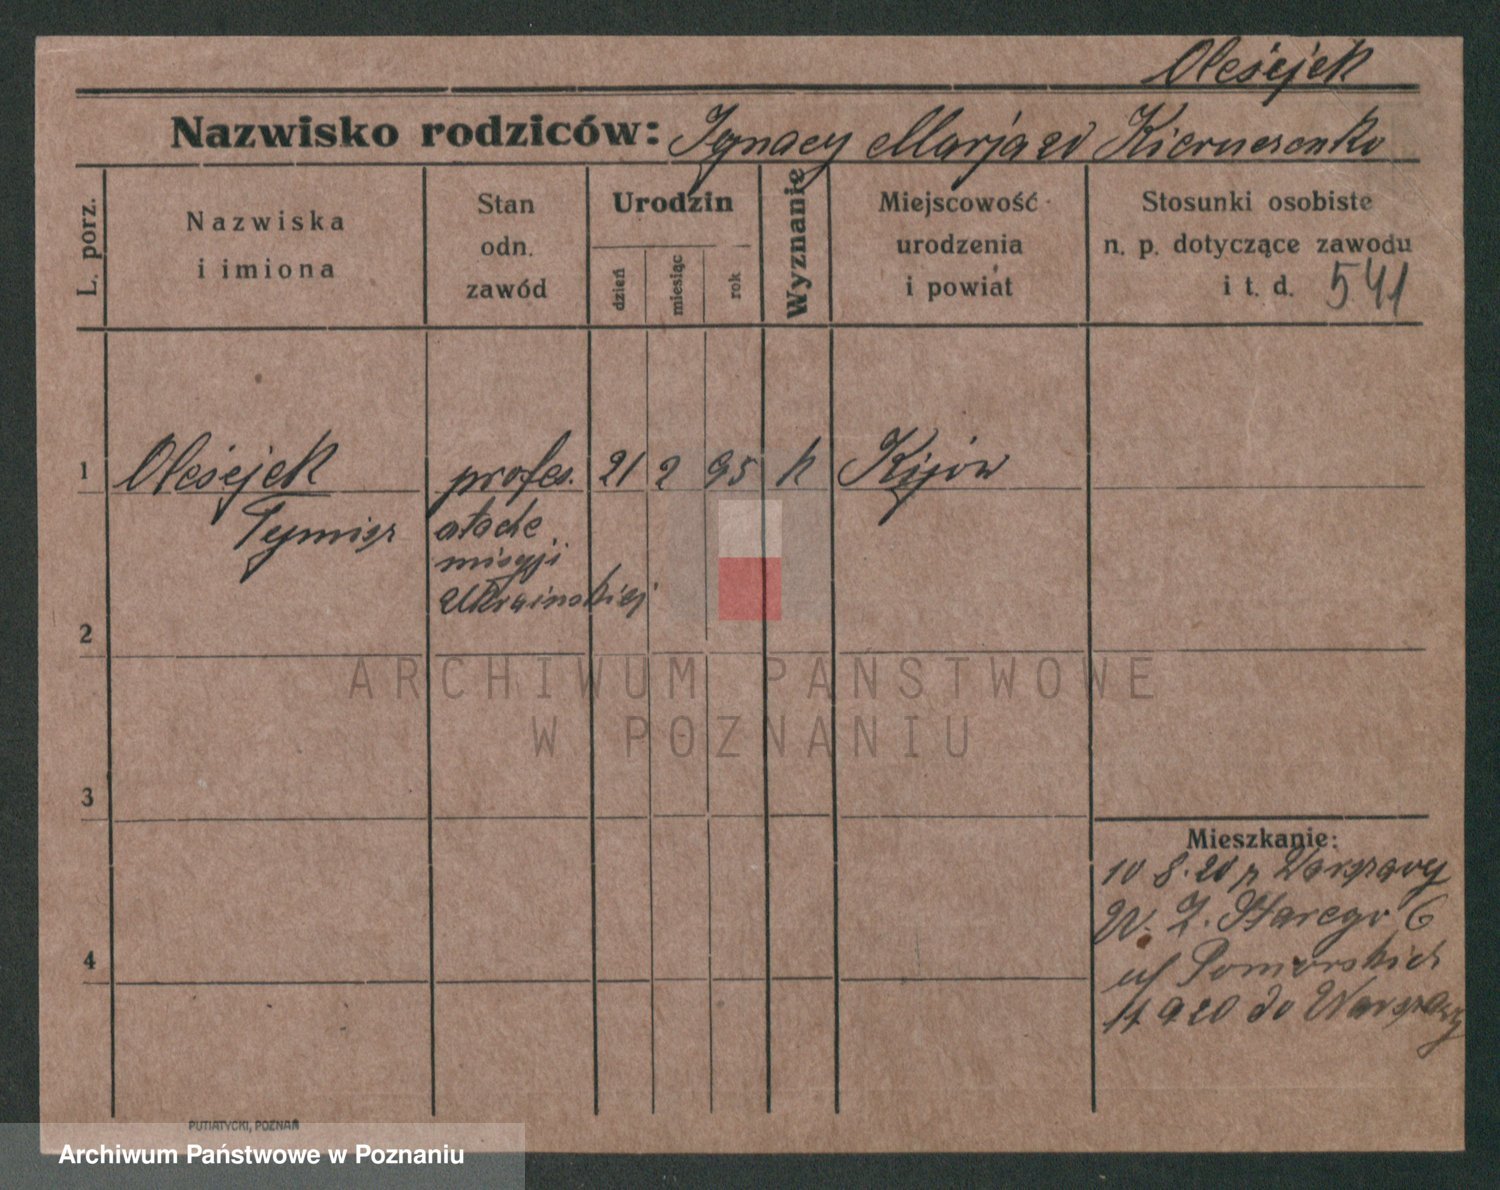 Oleśejek
Nazwisko rodziców: Ignacy Marja zd Kierneszenko
L. porz.
Nazwiska
i imiona
Stan
odn.
zawód
Urodzin
dzień
miesiąc
rok
Wyznanie
Miejscowość
urodzenia
i powiat
Stosunki osobiste
n. p. dotyczące zawodu
i t. d. 541
1 Oleśejek profes. 21 2 95 k Kijów
atache
misyji
Ukrainskiej
2
ARCHIWUM PAŃSTWOWE
W POZNANIU
3
Mieszkanie:
10 8. 20 z Warszawy
W. Z. Starego 6
ul Pomorskich
4
920 do Warszawy
PUTIATYCKI, POZNAŃ
Archiwum Państwowe w Poznaniu